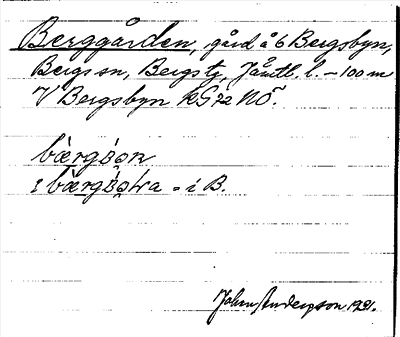 Berggården, gård å 6 Bergsbyn,
Bergs sn, Bergs tg, Jämtl. l. – 100 m
V Bergsbyn kG 72 NÖ.
i B.
John Anderpson 1931.